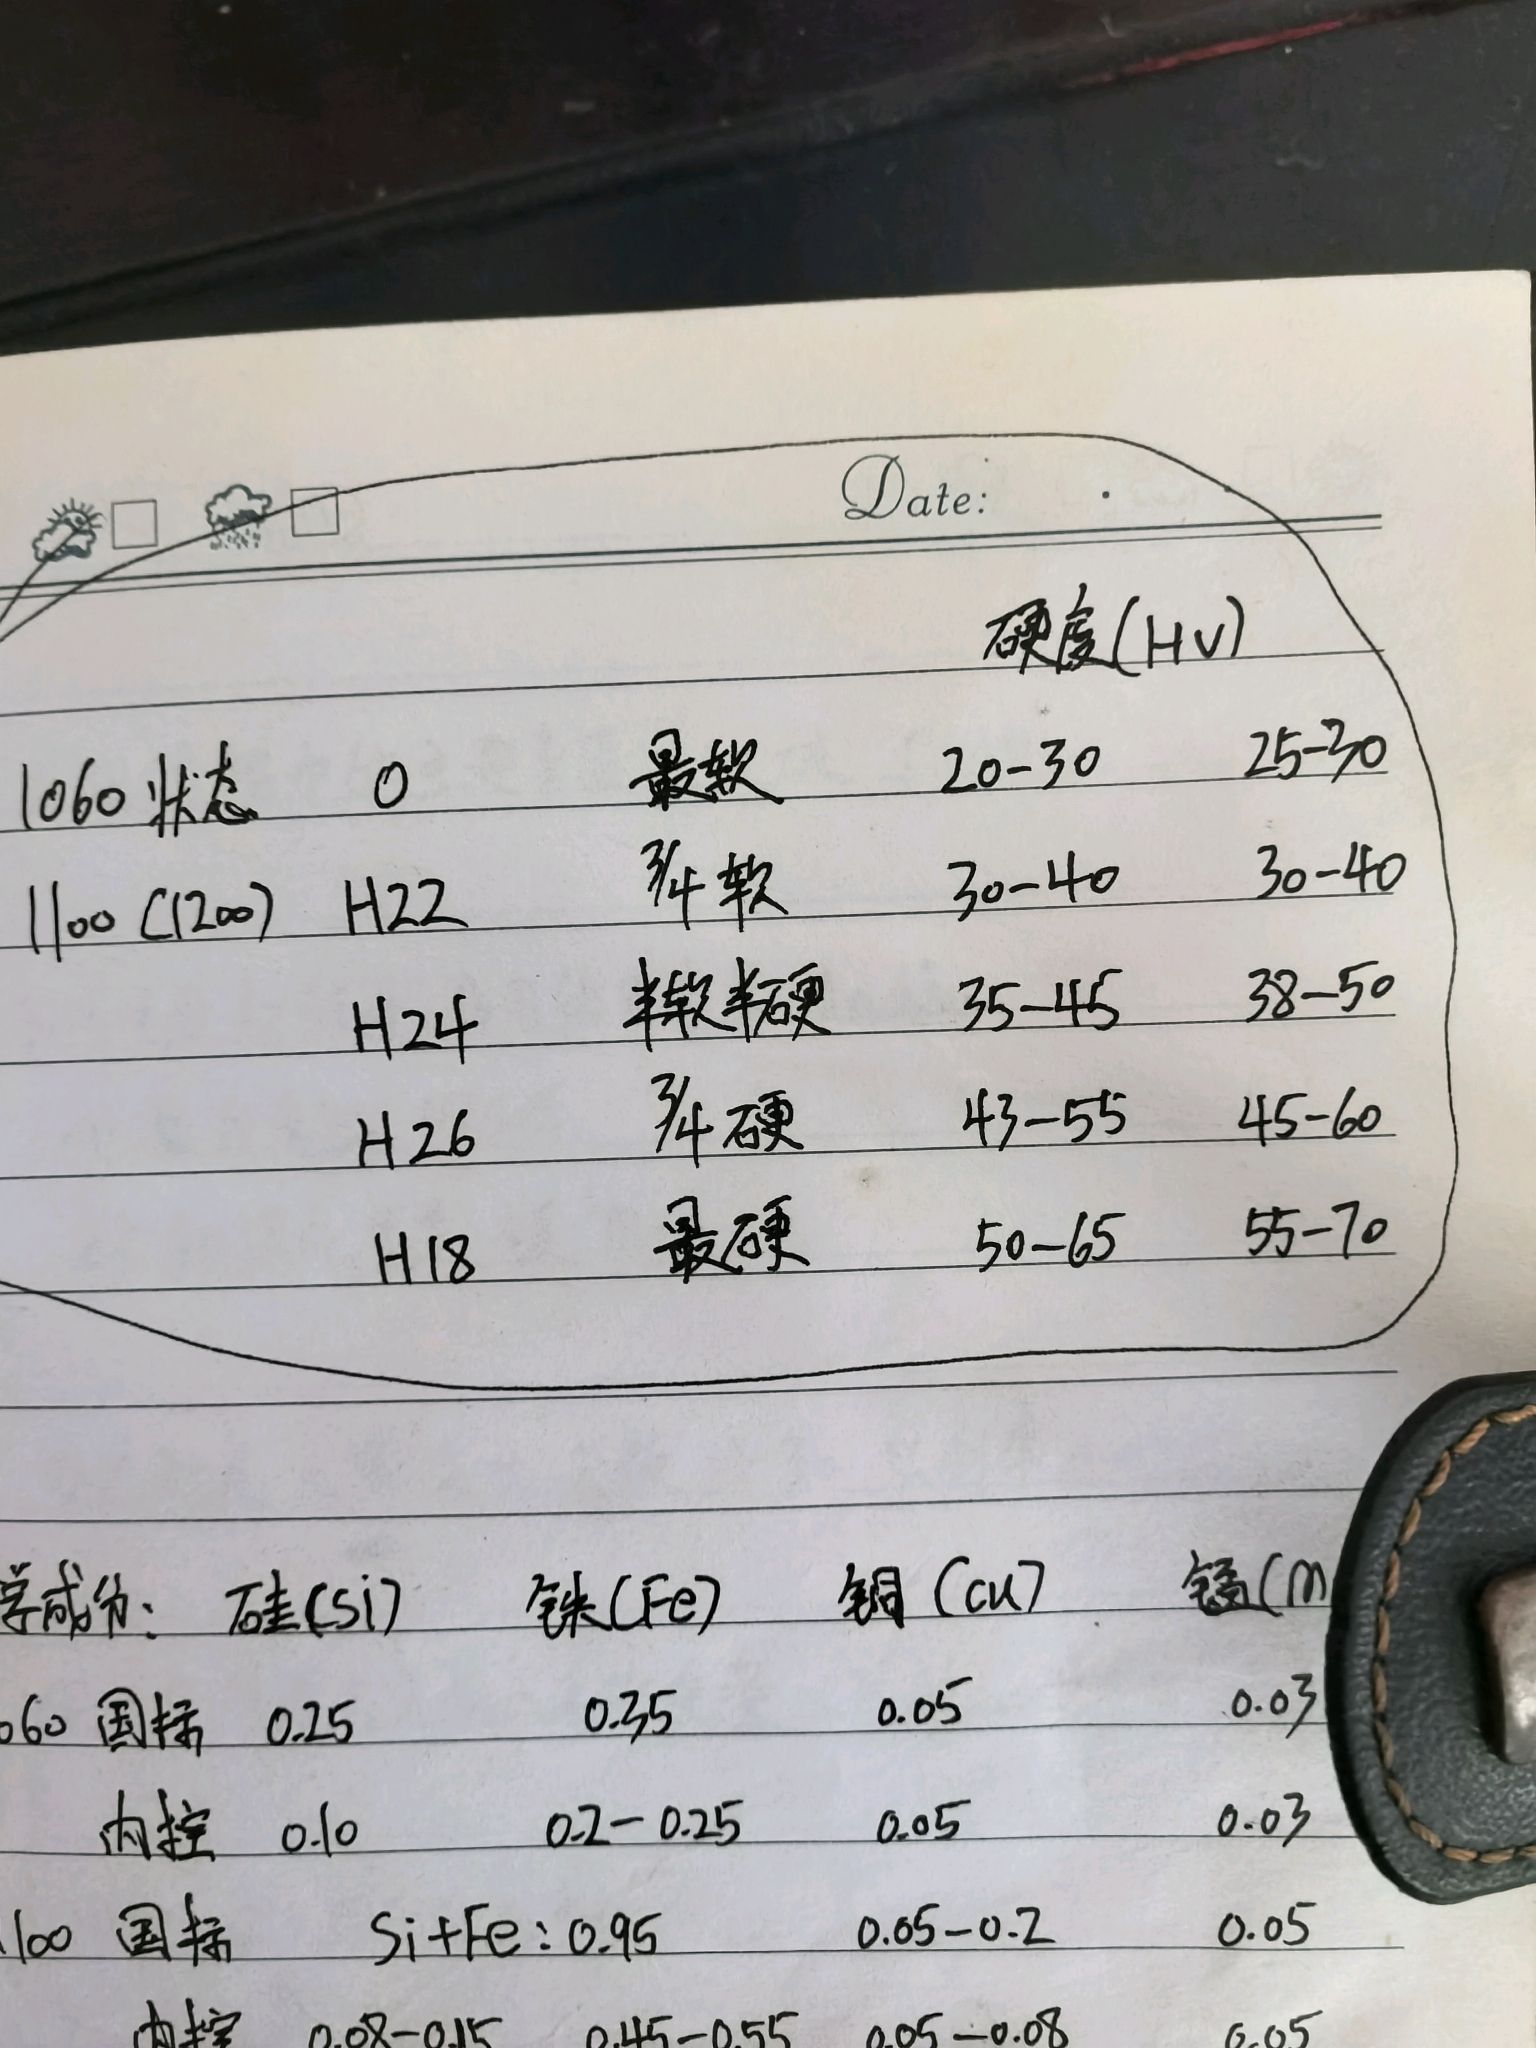 Date:
硬度(HV)
1060 状态 0 最软 20-30 25-30
1100 (1200) H22 3/4 软 30-40 30-40
H24 半软半硬 35-45 38-50
H26 3/4 硬 43-55 45-60
H18 最硬 50-65 55-70
学成分: 硅(Si) 铁(Fe) 铜(Cu) 锰(M
060 国标 0.25 0.35 0.05 0.03
内控 0.10 0.2-0.25 0.05 0.03
1100 国标 Si+Fe: 0.95 0.05-0.2 0.05
内控 0.08-0.15 0.45-0.55 0.05-0.08 0.05